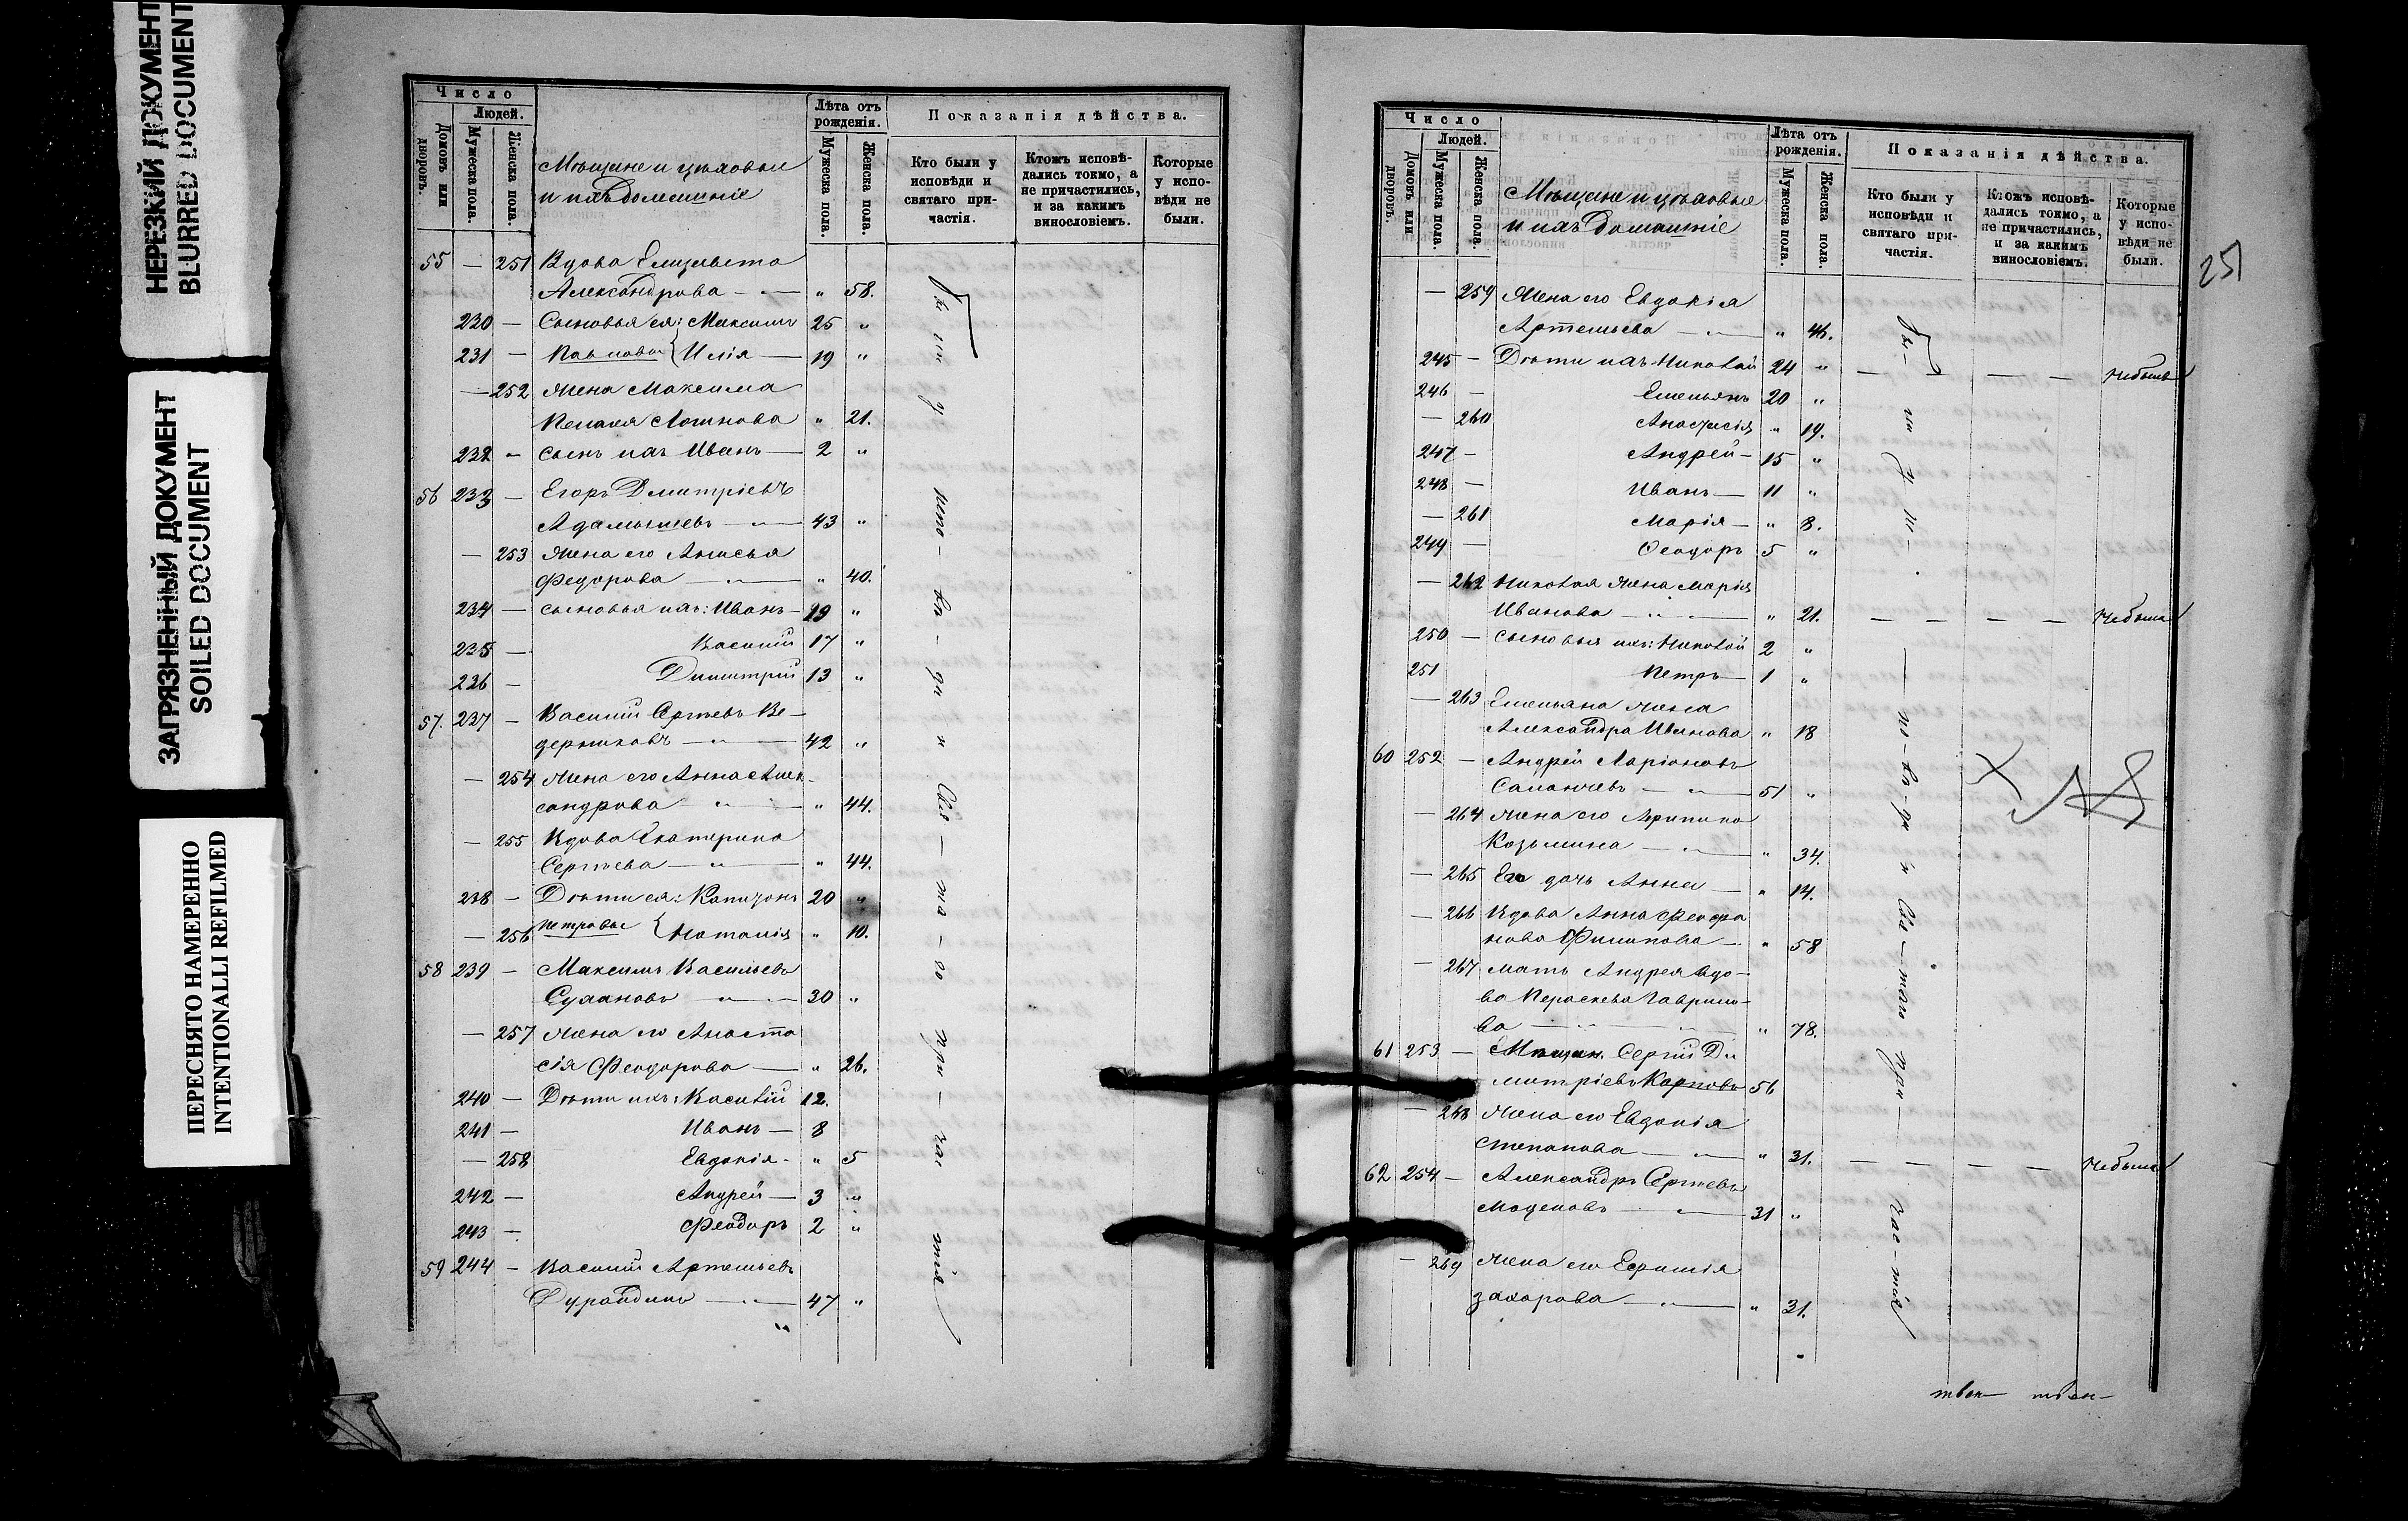 НЕРЕЗКИЙ ДОКУМЕНТ
BLURRED DOCUMENT
ЗАГРЯЗНЕННЫЙ ДОКУМЕНТ
SOILED DOCUMENT
ПЕРЕСНЯТО НАМЕРЕННО
INTENTIONALLI REFILMED
Число
Людей.
Домовъ или дворовъ.
Мужеска пола.
Женска пола.
Мѣщане и цѣховые
и ихъ домашніе
Лѣта отъ рожденія.
Мужеска пола.
Женска пола.
Показанія дѣйства.
Кто были у исповѣди и святаго причастія.
Ктожъ исповѣдались токмо, а не причастились, и за какимъ винословіемъ.
Которые у исповѣди не были.
55 — 251 Вдова Елизавета
Александрова — " 58.
230 — Сыновья ея: Максимъ 25 "
231 — Павловы { Илія — 19 "
— 252 Жена Максима
Пелагея Логинова " 21.
232 — Сынъ ихъ Иванъ — 2 "
56 233 — Егоръ Дмитріевъ
43 "
— 253 Жена его Анисья
Федорова — " 40.
234 — Сыновья ихъ: Иванъ — 19 "
235 — Василій 17 "
236 — Димитрій 13 "
57. 237 — Василій Сергѣевъ Ве-
дерниковъ — 42 "
— 254 Жена его Анна Алек-
сандрова " 44.
— 255 Вдова Екатерина
Сергѣева — " 44.
238 — Дѣти ея: 20 "
— 256 Петровы { Наталія " 10.
58 239 — Максимъ Васильевъ
30 "
— 257 Жена его Анаста
сія Феодорова — " 26.
240 — Дѣти ихъ: Василій 12.
241 — Иванъ — 8
— 258 Евдокія — " 5
242 — Андрей — 3 "
243 — Феодоръ 2 "
59 244 — Василій Артемьевъ
Фурандинъ — 47 "
Бы ли у испо-вѣ-ди и Свя-та-го при-час тія
Число
Людей.
Домовъ или дворовъ.
Мужеска пола.
Женска пола.
Мѣщане и цѣховые
и ихъ домашніе
Лѣта отъ рожденія.
Мужеска пола.
Женска пола.
Показанія дѣйства.
Кто были у исповѣди и святаго причастія.
Ктожъ исповѣдались токмо, а не причастились, и за какимъ винословіемъ.
Которые у исповѣди не были.
25
— 259 Жена его Евдокія
Артемьева — " 46.
245 — Дѣти ихъ: Николай 24 " — — — небылъ
246 — Емельянъ 20 "
— 260 Анастасія " 19.
247 — Андрей — 15 "
248 — Иванъ — 11 "
— 261 Марія — " 8.
249 — Ѳеодоръ 5 "
— 262 Николая жена Марія
Иванова — " 21. — — — — небыла
250 — Сыновья ихъ: Николай 2 "
251 Петръ — 1 "
— 263 Емельяна жена
Александра Иванова " 18
60 252 — Андрей Ларіоновъ
51 "
— 264 Жена его Агрипина
Козьмина — " 34.
— 265 Его дочь Анна — " 14.
— 266 Вдова Анна Феофа
нова Филипова — " 58
— 267 Мать Андрея вдо-
ва Пераскева Гаврило-
ва — " 78.
61 253 — Мѣщан. Сергій Ди
митріевъ Карповъ 56
— 268 Жена его Евдокія
Степанова — " 31. — — — — небыла
62 254 — Александръ Сергѣевъ
31 "
— 269 Жена его Ефимія
Захарова — " 31.
твен— твен—